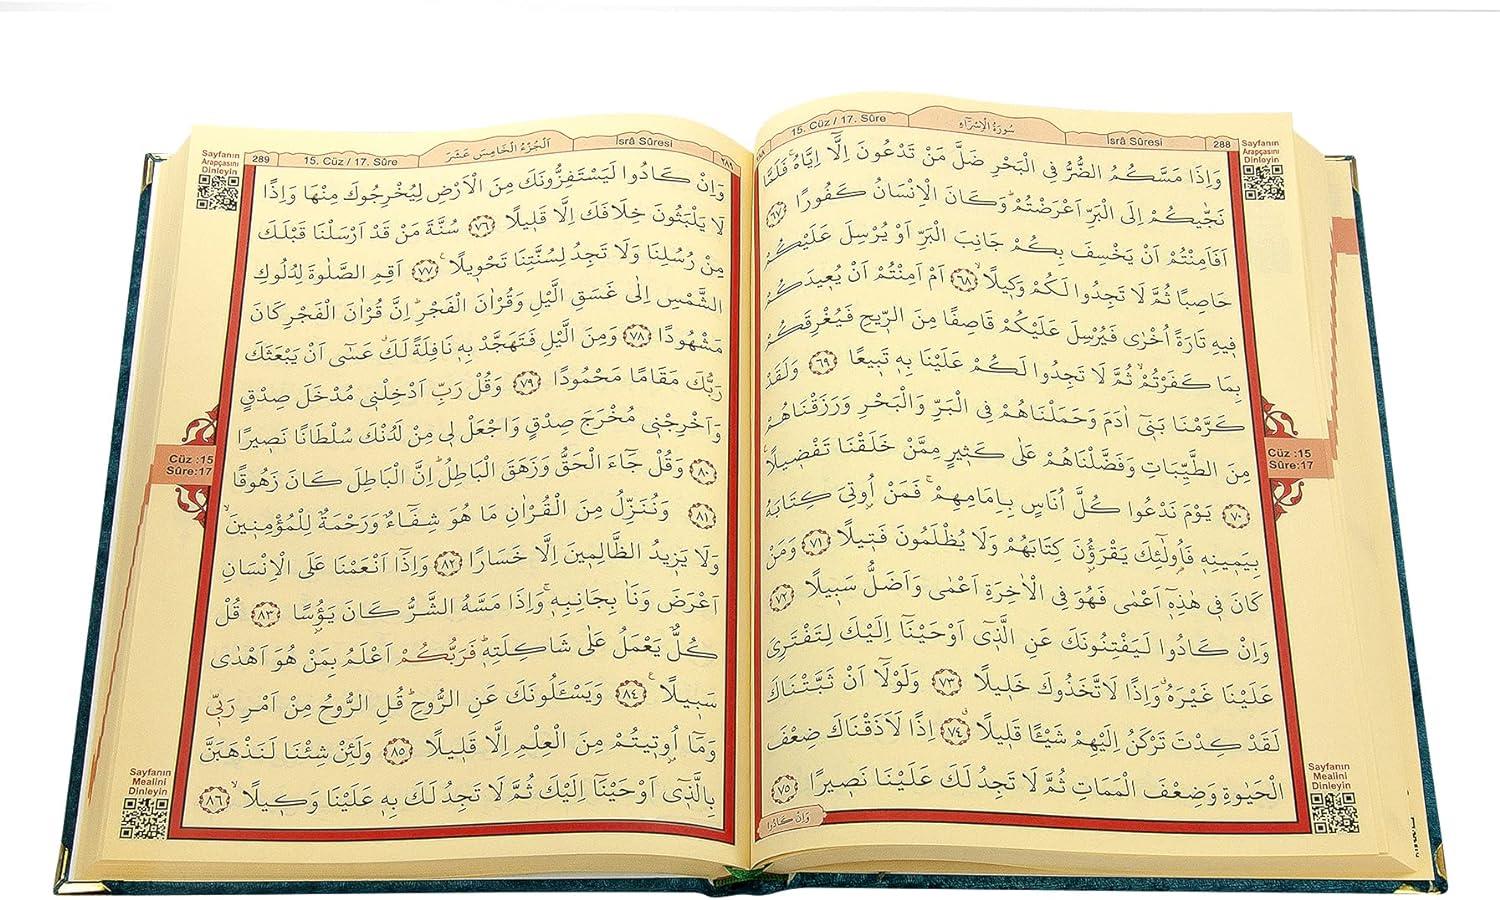 15. Cüz / 17. Sûre
سُورَةُ الْاِسْرَاءِ
İsrâ Sûresi
288
وَاِذَا مَسَّكُمُ الضُّرُّ فِي الْبَحْرِ ضَلَّ مَنْ تَدْعُونَ اِلَّٓا اِيَّاهُۚ فَلَمَّا
نَجّٰيكُمْ اِلَى الْبَرِّ اَعْرَضْتُمْۜ وَكَانَ الْاِنْسَانُ كَفُورًا ﴿٦٧﴾
اَفَاَمِنْتُمْ اَنْ يَخْسِفَ بِكُمْ جَانِبَ الْبَرِّ اَوْ يُرْسِلَ عَلَيْكُمْ
حَاصِبًا ثُمَّ لَا تَجِدُوا لَكُمْ وَكِيلًاۙ ﴿٦٨﴾ اَمْ اَمِنْتُمْ اَنْ يُعِيدَكُمْ
فِيهِ تَارَةً اُخْرٰى فَيُرْسِلَ عَلَيْكُمْ قَاصِفًا مِنَ الرِّيحِ فَيُغْرِقَكُمْ
بِمَا كَفَرْتُمْۙ ثُمَّ لَا تَجِدُوا لَكُمْ عَلَيْنَا بِهِ تَبِيعًا ﴿٦٩﴾ وَلَقَدْ
كَرَّمْنَا بَنِٓي اٰدَمَ وَحَمَلْنَاهُمْ فِي الْبَرِّ وَالْبَحْرِ وَرَزَقْنَاهُمْ
مِنَ الطَّيِّبَاتِ وَفَضَّلْنَاهُمْ عَلٰى كَثِيرٍ مِمَّنْ خَلَقْنَا تَفْضِيلًا۟
﴿٧٠﴾ يَوْمَ نَدْعُوا كُلَّ اُنَاسٍ بِاِمَامِهِمْۚ فَمَنْ اُو۫تِيَ كِتَابَهُ
بِيَمِينِهِ فَاُو۬لٰٓئِكَ يَقْرَؤُ۫نَ كِتَابَهُمْ وَلَا يُظْلَمُونَ فَتِيلًا ﴿٧١﴾ وَمَنْ
كَانَ فِي هٰذِهِٓ اَعْمٰى فَهُوَ فِي الْاٰخِرَةِ اَعْمٰى وَاَضَلُّ سَبِيلًا ﴿٧٢﴾
وَاِنْ كَادُوا لَيَفْتِنُونَكَ عَنِ الَّذِٓي اَوْحَيْنَٓا اِلَيْكَ لِتَفْتَرِيَ
عَلَيْنَا غَيْرَهُۗ وَاِذًا لَاتَّخَذُوكَ خَلِيلًا ﴿٧٣﴾ وَلَوْلَٓا اَنْ ثَبَّتْنَاكَ
لَقَدْ كِدْتَ تَرْكَنُ اِلَيْهِمْ شَيْـًٔا قَلِيلًاۗ ﴿٧٤﴾ اِذًا لَاَذَقْنَاكَ ضِعْفَ
الْحَيٰوةِ وَضِعْفَ الْمَمَاتِ ثُمَّ لَا تَجِدُ لَكَ عَلَيْنَا نَصِيرًا ﴿٧٥﴾
وَاِنْ كَادُوا
Sayfanın
Arapçasını
Dinleyin
Cüz :15
Sûre:17
Sayfanın
Mealini
Dinleyin
289
15. Cüz / 17. Sûre
اَلْجُزْءُ الْخَامِسَ عَشَرَ
İsrâ Sûresi
٢٨٩
وَاِنْ كَادُوا لَيَسْتَفِزُّونَكَ مِنَ الْاَرْضِ لِيُخْرِجُوكَ مِنْهَا وَاِذًا
لَا يَلْبَثُونَ خِلَافَكَ اِلَّا قَلِيلًا ﴿٧٦﴾ سُنَّةَ مَنْ قَدْ اَرْسَلْنَا قَبْلَكَ
مِنْ رُسُلِنَا وَلَا تَجِدُ لِسُنَّتِنَا تَحْوِيلًا۟ ﴿٧٧﴾ اَقِمِ الصَّلٰوةَ لِدُلُوكِ
الشَّمْسِ اِلٰى غَسَقِ الَّيْلِ وَقُرْاٰنَ الْفَجْرِۜ اِنَّ قُرْاٰنَ الْفَجْرِ كَانَ
مَشْهُودًا ﴿٧٨﴾ وَمِنَ الَّيْلِ فَتَهَجَّدْ بِهِ نَافِلَةً لَكَۗ عَسٰٓى اَنْ يَبْعَثَكَ
رَبُّكَ مَقَامًا مَحْمُودًا ﴿٧٩﴾ وَقُلْ رَبِّ اَدْخِلْنِي مُدْخَلَ صِدْقٍ
وَاَخْرِجْنِي مُخْرَجَ صِدْقٍ وَاجْعَلْ لِي مِنْ لَدُنْكَ سُلْطَانًا نَصِيرًا
﴿٨٠﴾ وَقُلْ جَٓاءَ الْحَقُّ وَزَهَقَ الْبَاطِلُۜ اِنَّ الْبَاطِلَ كَانَ زَهُوقًا
﴿٨١﴾ وَنُنَزِّلُ مِنَ الْقُرْاٰنِ مَا هُوَ شِفَٓاءٌ وَرَحْمَةٌ لِلْمُؤْمِنِينَۙ
وَلَا يَزِيدُ الظَّالِمِينَ اِلَّا خَسَارًا ﴿٨٢﴾ وَاِذَٓا اَنْعَمْنَا عَلَى الْاِنْسَانِ
اَعْرَضَ وَنَاٰ بِجَانِبِهِۚ وَاِذَا مَسَّهُ الشَّرُّ كَانَ يَؤُ۫سًا ﴿٨٣﴾ قُلْ
كُلٌّ يَعْمَلُ عَلٰى شَاكِلَتِهِۜ فَرَبُّكُمْ اَعْلَمُ بِمَنْ هُوَ اَهْدٰى
سَبِيلًا۟ ﴿٨٤﴾ وَيَسْـَٔلُونَكَ عَنِ الرُّوحِۜ قُلِ الرُّوحُ مِنْ اَمْرِ رَبِّي
وَمَٓا اُو۫تِيتُمْ مِنَ الْعِلْمِ اِلَّا قَلِيلًا ﴿٨٥﴾ وَلَئِنْ شِئْنَا لَنَذْهَبَنَّ
بِالَّذِٓي اَوْحَيْنَٓا اِلَيْكَ ثُمَّ لَا تَجِدُ لَكَ بِهِ عَلَيْنَا وَكِيلًاۙ ﴿٨٦﴾
Sayfanın
Arapçasını
Dinleyin
Cüz :15
Sûre:17
Sayfanın
Mealini
Dinleyin